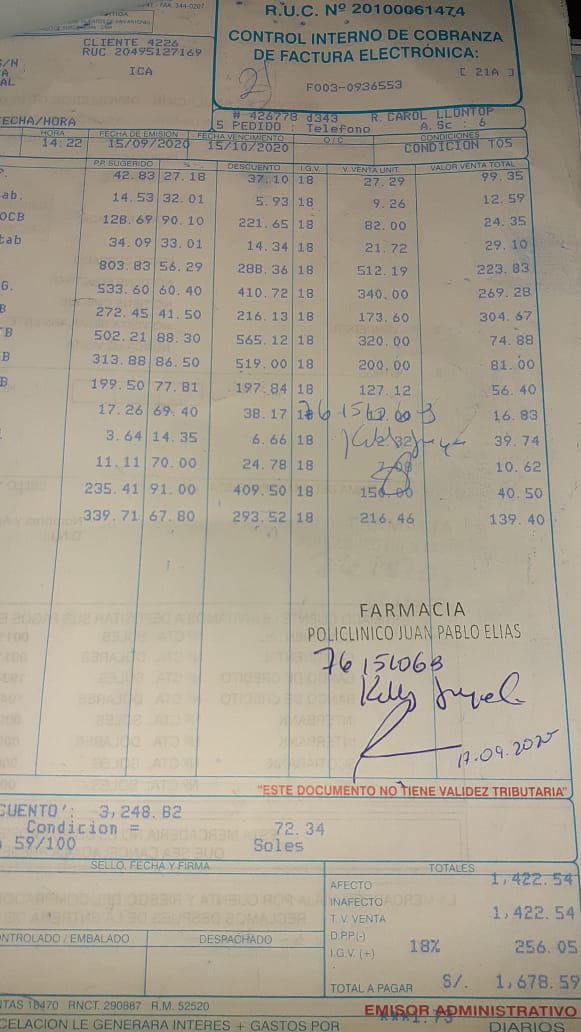 FAX. 344-0207
R.U.C. Nº 20100061474
CONTROL INTERNO DE COBRANZA
DE FACTURA ELECTRÓNICA:
[ 21A ]
F003-0936553
CLIENTE 4226
RUC 20495127169
S/N
ICA
AL
# 426778 d343 R. CAROL LLONTOP
S PEDIDO : Telefono A.Sc : 6
FECHA/HORA
HORA FECHA DE EMISIÓN FECHA VENCIMIENTO O/C CONDICIONES
14:22 15/09/2020 15/10/2020 CONDICION T05
P.P. SUGERIDO % DESCUENTO I.G.V. V. VENTA UNIT. VALOR VENTA TOTAL
42.83 27.18 37.10 18 27.29 99.35
ab. 14.53 32.01 5.93 18 9.26 12.59
OCB 128.69 90.10 221.65 18 82.00 24.35
tab 34.09 33.01 14.34 18 21.72 29.10
803.83 56.29 288.36 18 512.19 223.83
G. 533.60 60.40 410.72 18 340.00 269.28
B 272.45 41.50 216.13 18 173.60 304.67
TB 502.21 88.30 565.12 18 320.00 74.88
CB 313.88 86.50 519.00 18 200.00 81.00
B. 199.50 77.81 197.84 18 127.12 56.40
17.26 69.40 38.17 16.83
3.64 14.35 6.66 18 39.74
11.11 70.00 24.78 18 10.62
235.41 91.00 409.50 18 150.00 40.50
339.71 67.80 293.52 18 216.46 139.40
FARMACIA
POLICLINICO JUAN PABLO ELIAS
76156063
17.09.2020
"ESTE DOCUMENTO NO TIENE VALIDEZ TRIBUTARIA"
CUENTO': 3,248.82
Condicion = 72.34
59/100 Soles
SELLO, FECHA Y FIRMA
TOTALES
AFECTO 1,422.54
INAFECTO
T.V. VENTA 1,422.54
D.P.P(-)
I.G.V. (+) 18% 256.05
TOTAL A PAGAR S/. 1,678.59
ONTROLADO / EMBALADO DESPACHADO
NTAS 18470 RNCT. 290887 R.M. 52520
EMISOR ADMINISTRATIVO
CELACION LE GENERARA INTERES + GASTOS POR DIARIOS